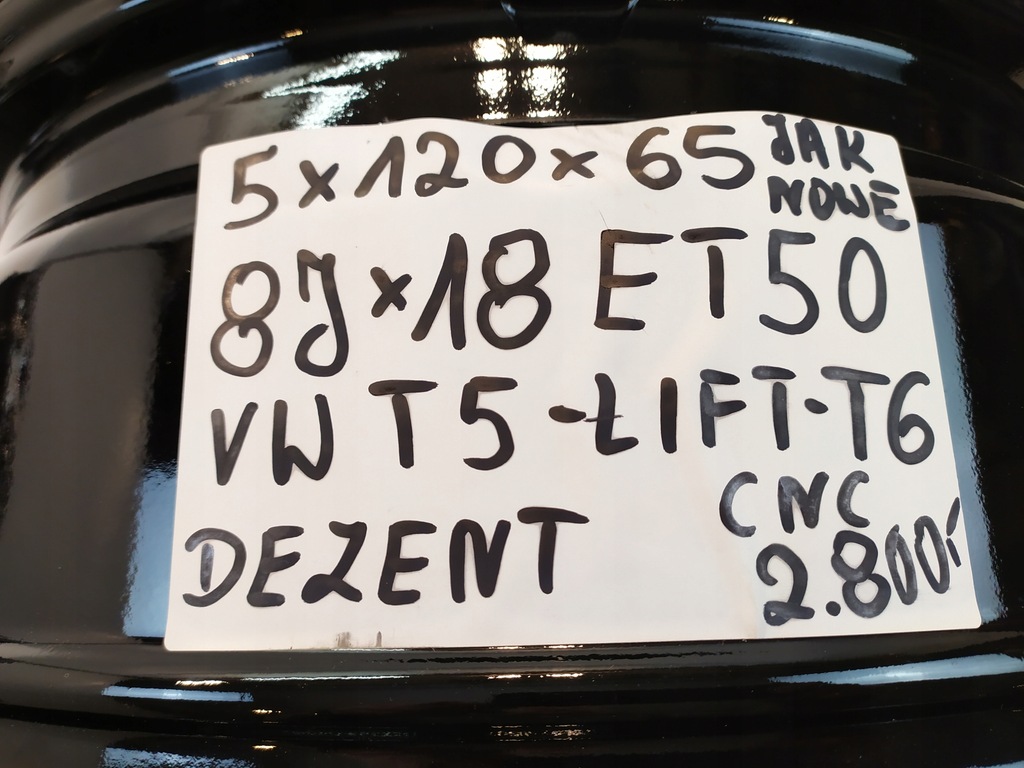 5x120x65 JAK
NOWE
8Jx18 ET50
VW T5-ŁIFT-T6
CNC
DEZENT 2.800,-